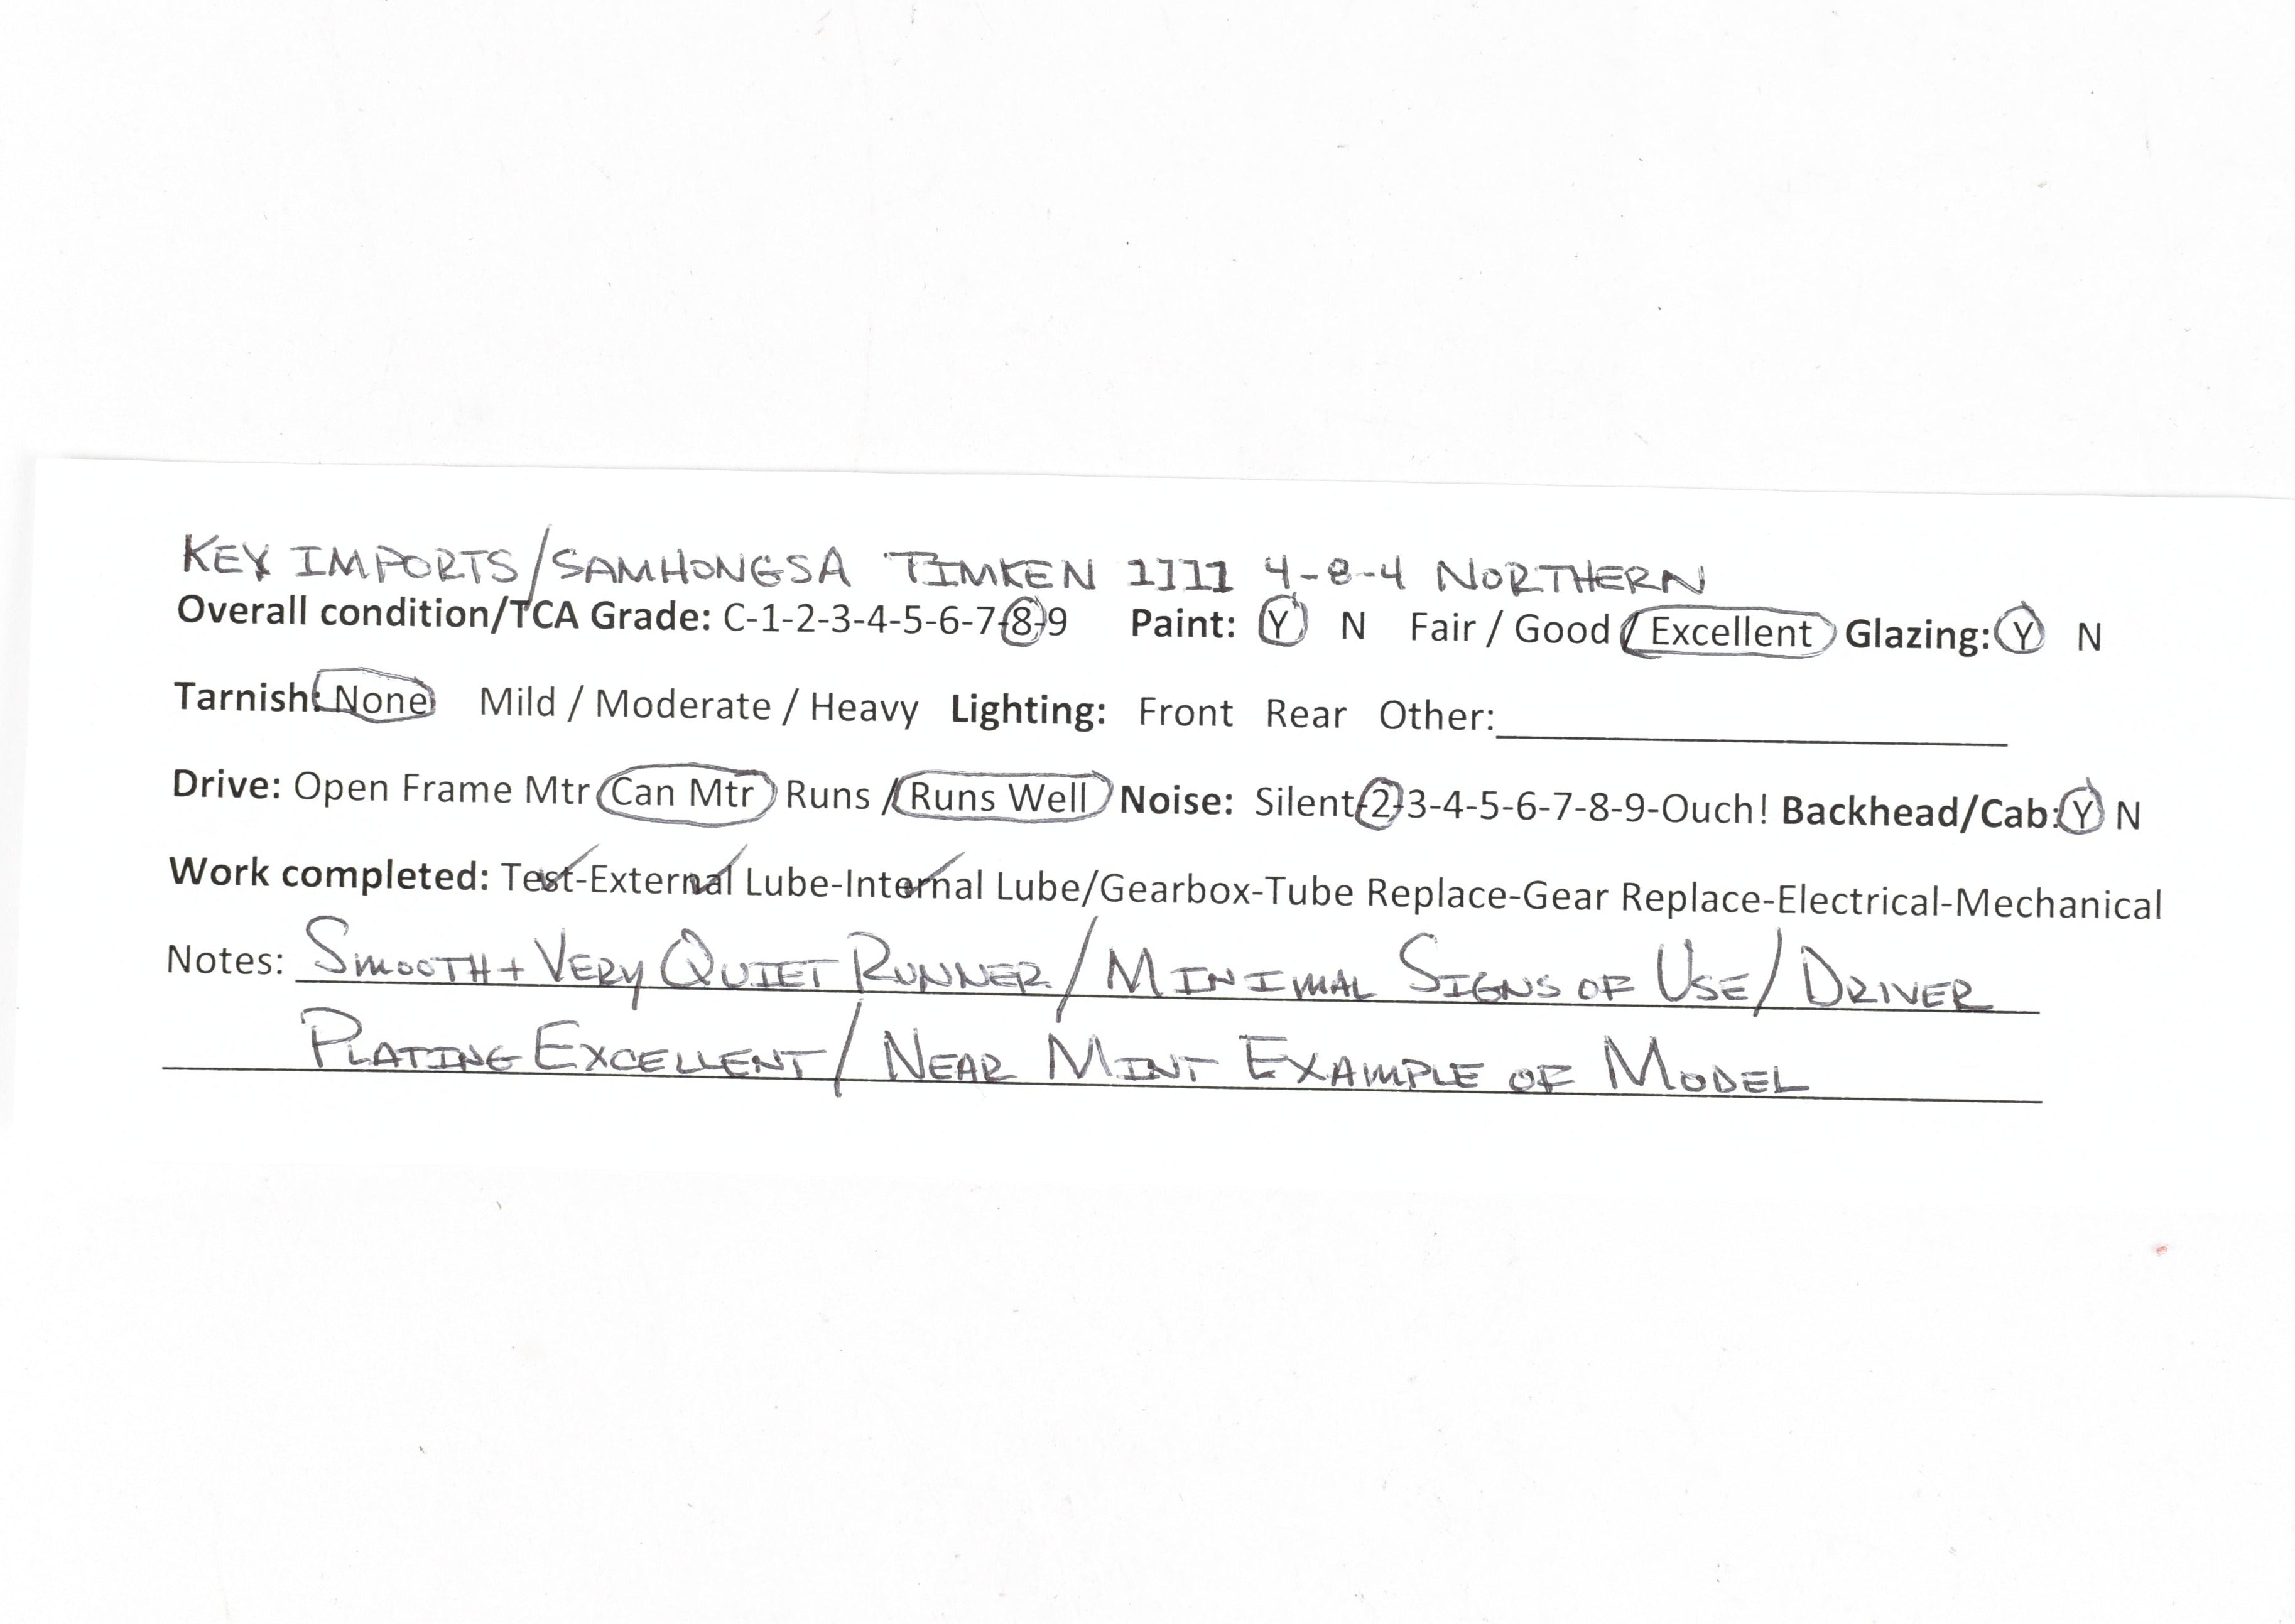 KEY IMPORTS/SAMHONGSA TIMKEN 1111 4-8-4 NORTHERN
Overall condition/TCA Grade: C-1-2-3-4-5-6-7-8-9 Paint: Y N Fair / Good / Excellent Glazing: Y N
Tarnish: None Mild / Moderate / Heavy Lighting: Front Rear Other:
Drive: Open Frame Mtr Can Mtr Runs / Runs Well Noise: Silent-2-3-4-5-6-7-8-9-Ouch! Backhead/Cab: Y N
Work completed: Test-External Lube-Internal Lube/Gearbox-Tube Replace-Gear Replace-Electrical-Mechanical
Notes: SMOOTH + VERY QUIET RUNNER / MINIMAL SIGNS OF USE / DRIVER
PLATING EXCELLENT / NEAR MINT EXAMPLE OF MODEL